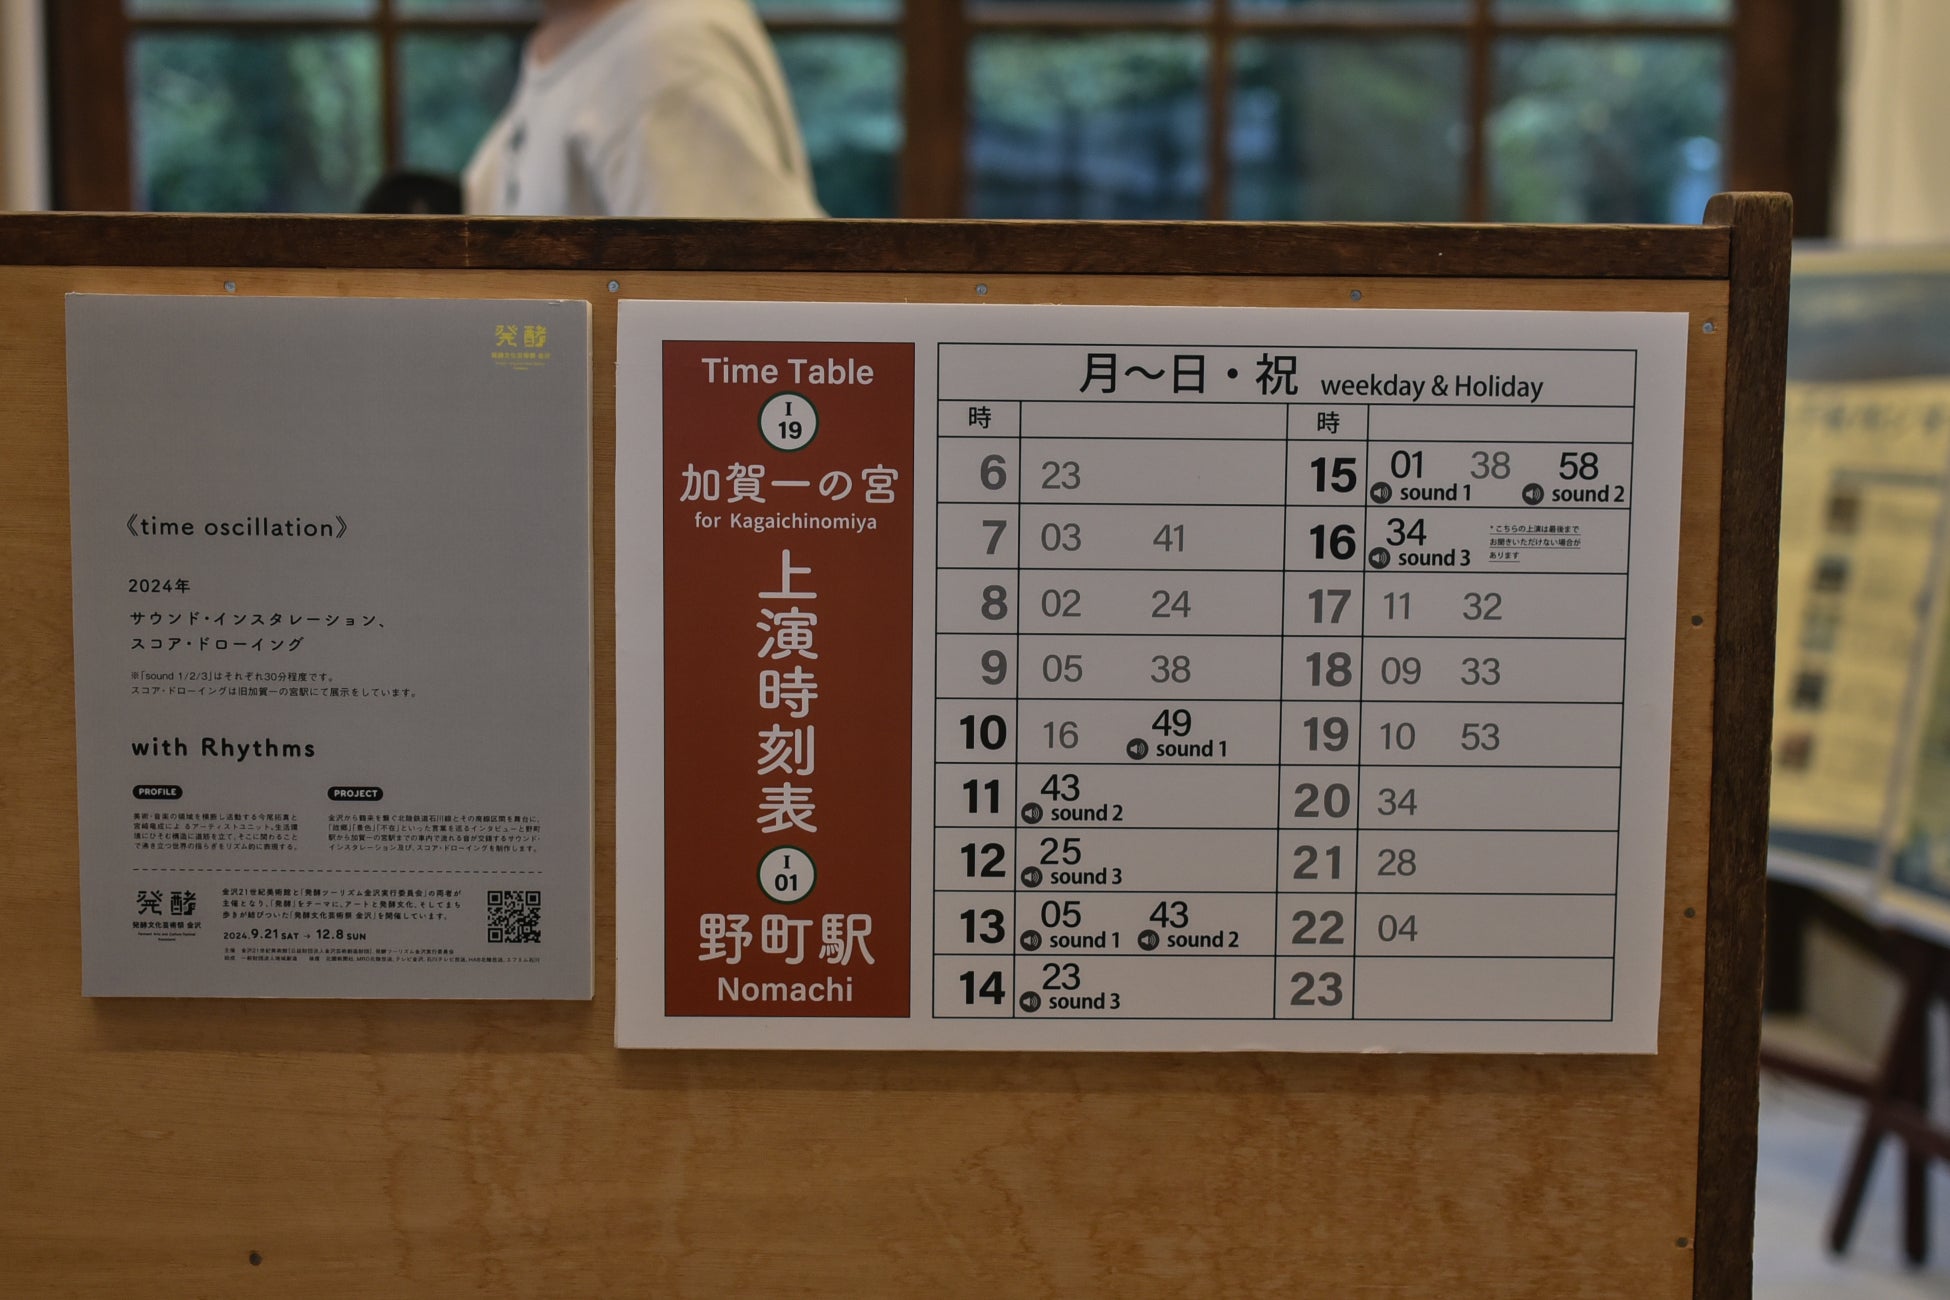 発酵
発酵文化芸術祭 金沢
《time oscillation》
2024年
サウンド・インスタレーション、
スコア・ドローイング
※「sound 1/2/3」はそれぞれ30分程度です。
スコア・ドローイングは旧加賀一の宮駅にて展示をしています。
with Rhythms
PROFILE
美術・音楽の領域を横断し活動する今尾拓真と
宮崎竜成によるアーティストユニット。生活環
境にひそむ構造に道筋を立て、そこに関わること
で沸き立つ世界の揺らぎをリズム的に表現する。
PROJECT
金沢から鶴来を繋ぐ北陸鉄道石川線とその廃線区間を舞台に、
「故郷」「景色」「不在」といった言葉を巡るインタビューと野町
駅から加賀一の宮駅までの車内で流れる音が交錯するサウンド・
インスタレーション及び、スコア・ドローイングを制作します。
発酵
発酵文化芸術祭 金沢
金沢21世紀美術館と「発酵ツーリズム金沢実行委員会」の両者が
主催となり、「発酵」をテーマに、アートと発酵文化、そしてまち
歩きが結びついた「発酵文化芸術祭 金沢」を開催しています。
2024.9.21 SAT → 12.8 SUN
主催 金沢21世紀美術館［公益財団法人金沢芸術創造財団］、発酵ツーリズム金沢実行委員会
助成 一般財団法人地域創造 後援 北國新聞社、MRO北陸放送、テレビ金沢、石川テレビ放送、HAB北陸放送、エフエム石川
Time Table
I
19
加賀一の宮
for Kagaichinomiya
上演時刻表
I
01
野町駅
Nomachi
月〜日・祝 weekday & Holiday
時
6 23
7 03 41
8 02 24
9 05 38
10 16 49
sound 1
11 43
sound 2
12 25
sound 3
13 05 43
sound 1 sound 2
14 23
sound 3
時
15 01 38 58
sound 1 sound 2
16 34
sound 3
*こちらの上演は最後まで
お聞きいただけない場合が
あります
17 11 32
18 09 33
19 10 53
20 34
21 28
22 04
23